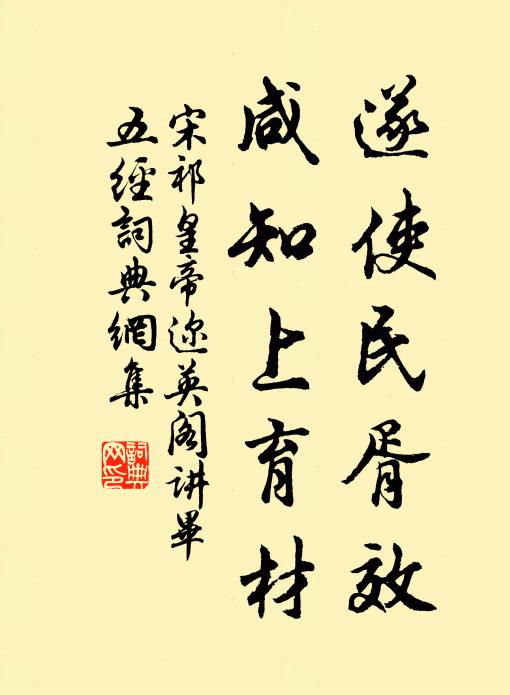 遂使民胥效
咸知上育材
宋祁皇帝迩英阁讲畢
五經詞典網集
詞典网印